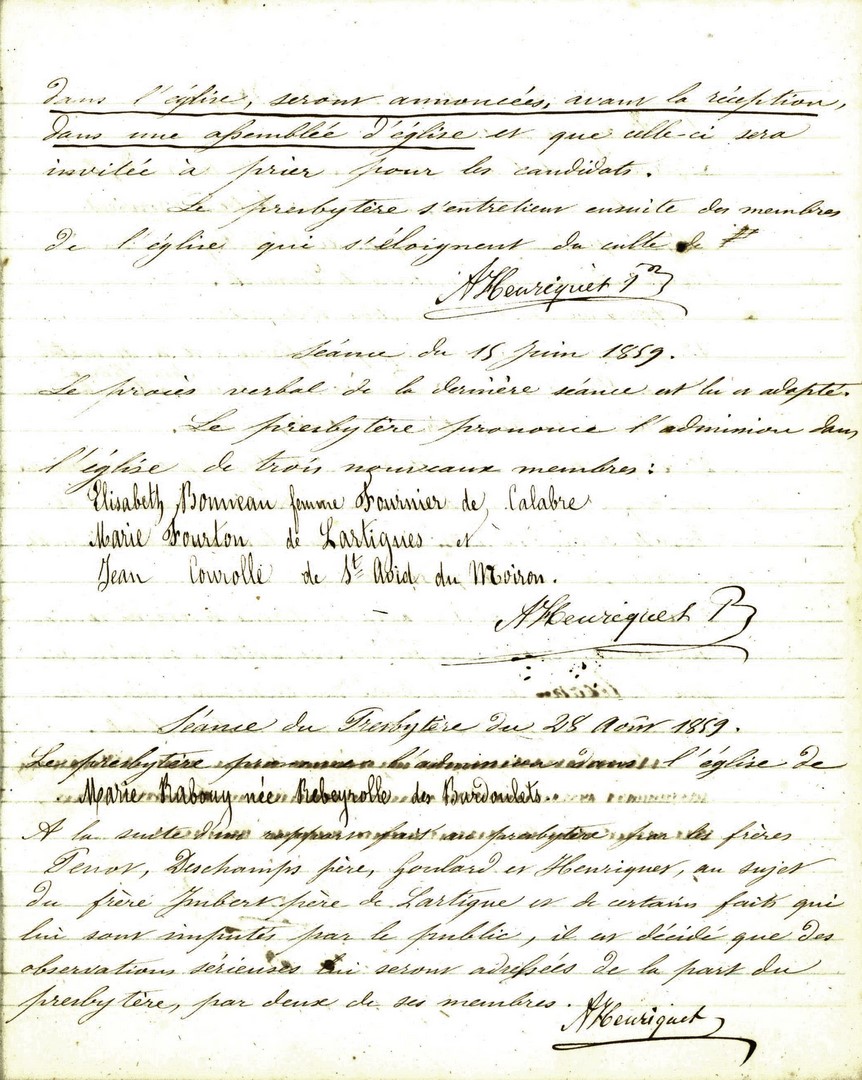 dans l'église, seront annoncées, avant la réception,
dans une assemblée d'église et que celle-ci sera
invitée à prier pour les candidats.
Le presbytère s'entretient ensuite des membres
de l'église qui s'éloignent du culte de
AHenriquet
Séance du 15 Juin 1859.
Le procès verbal de la dernière séance est lu et adopté.
Le presbytère prononce l'admission dans
l'église de trois nouveaux membres :
Elisabeth Bonneau femme Fournier de Calabre
Marie Fourton de Lartigues et
Jean Courolle de St Avid du Moiron.
AHenriquet P
Séance du Presbytère du 28 Août 1859.
Le presbytère prononce l'admission dans l'église de
Marie Rabouy née Rebeyrolle des Bardoulets.
A la suite d'un rapport fait au presbytère par les frères
Tenot, Deschamps père, Goulard et Henriquet, au sujet
du frère Imbert père de Lartigue et de certains faits qui
lui sont imputés par le public, il est décidé que des
observations sérieuses lui seront adressées de la part du
presbytère, par deux de ses membres.
AHenriquet